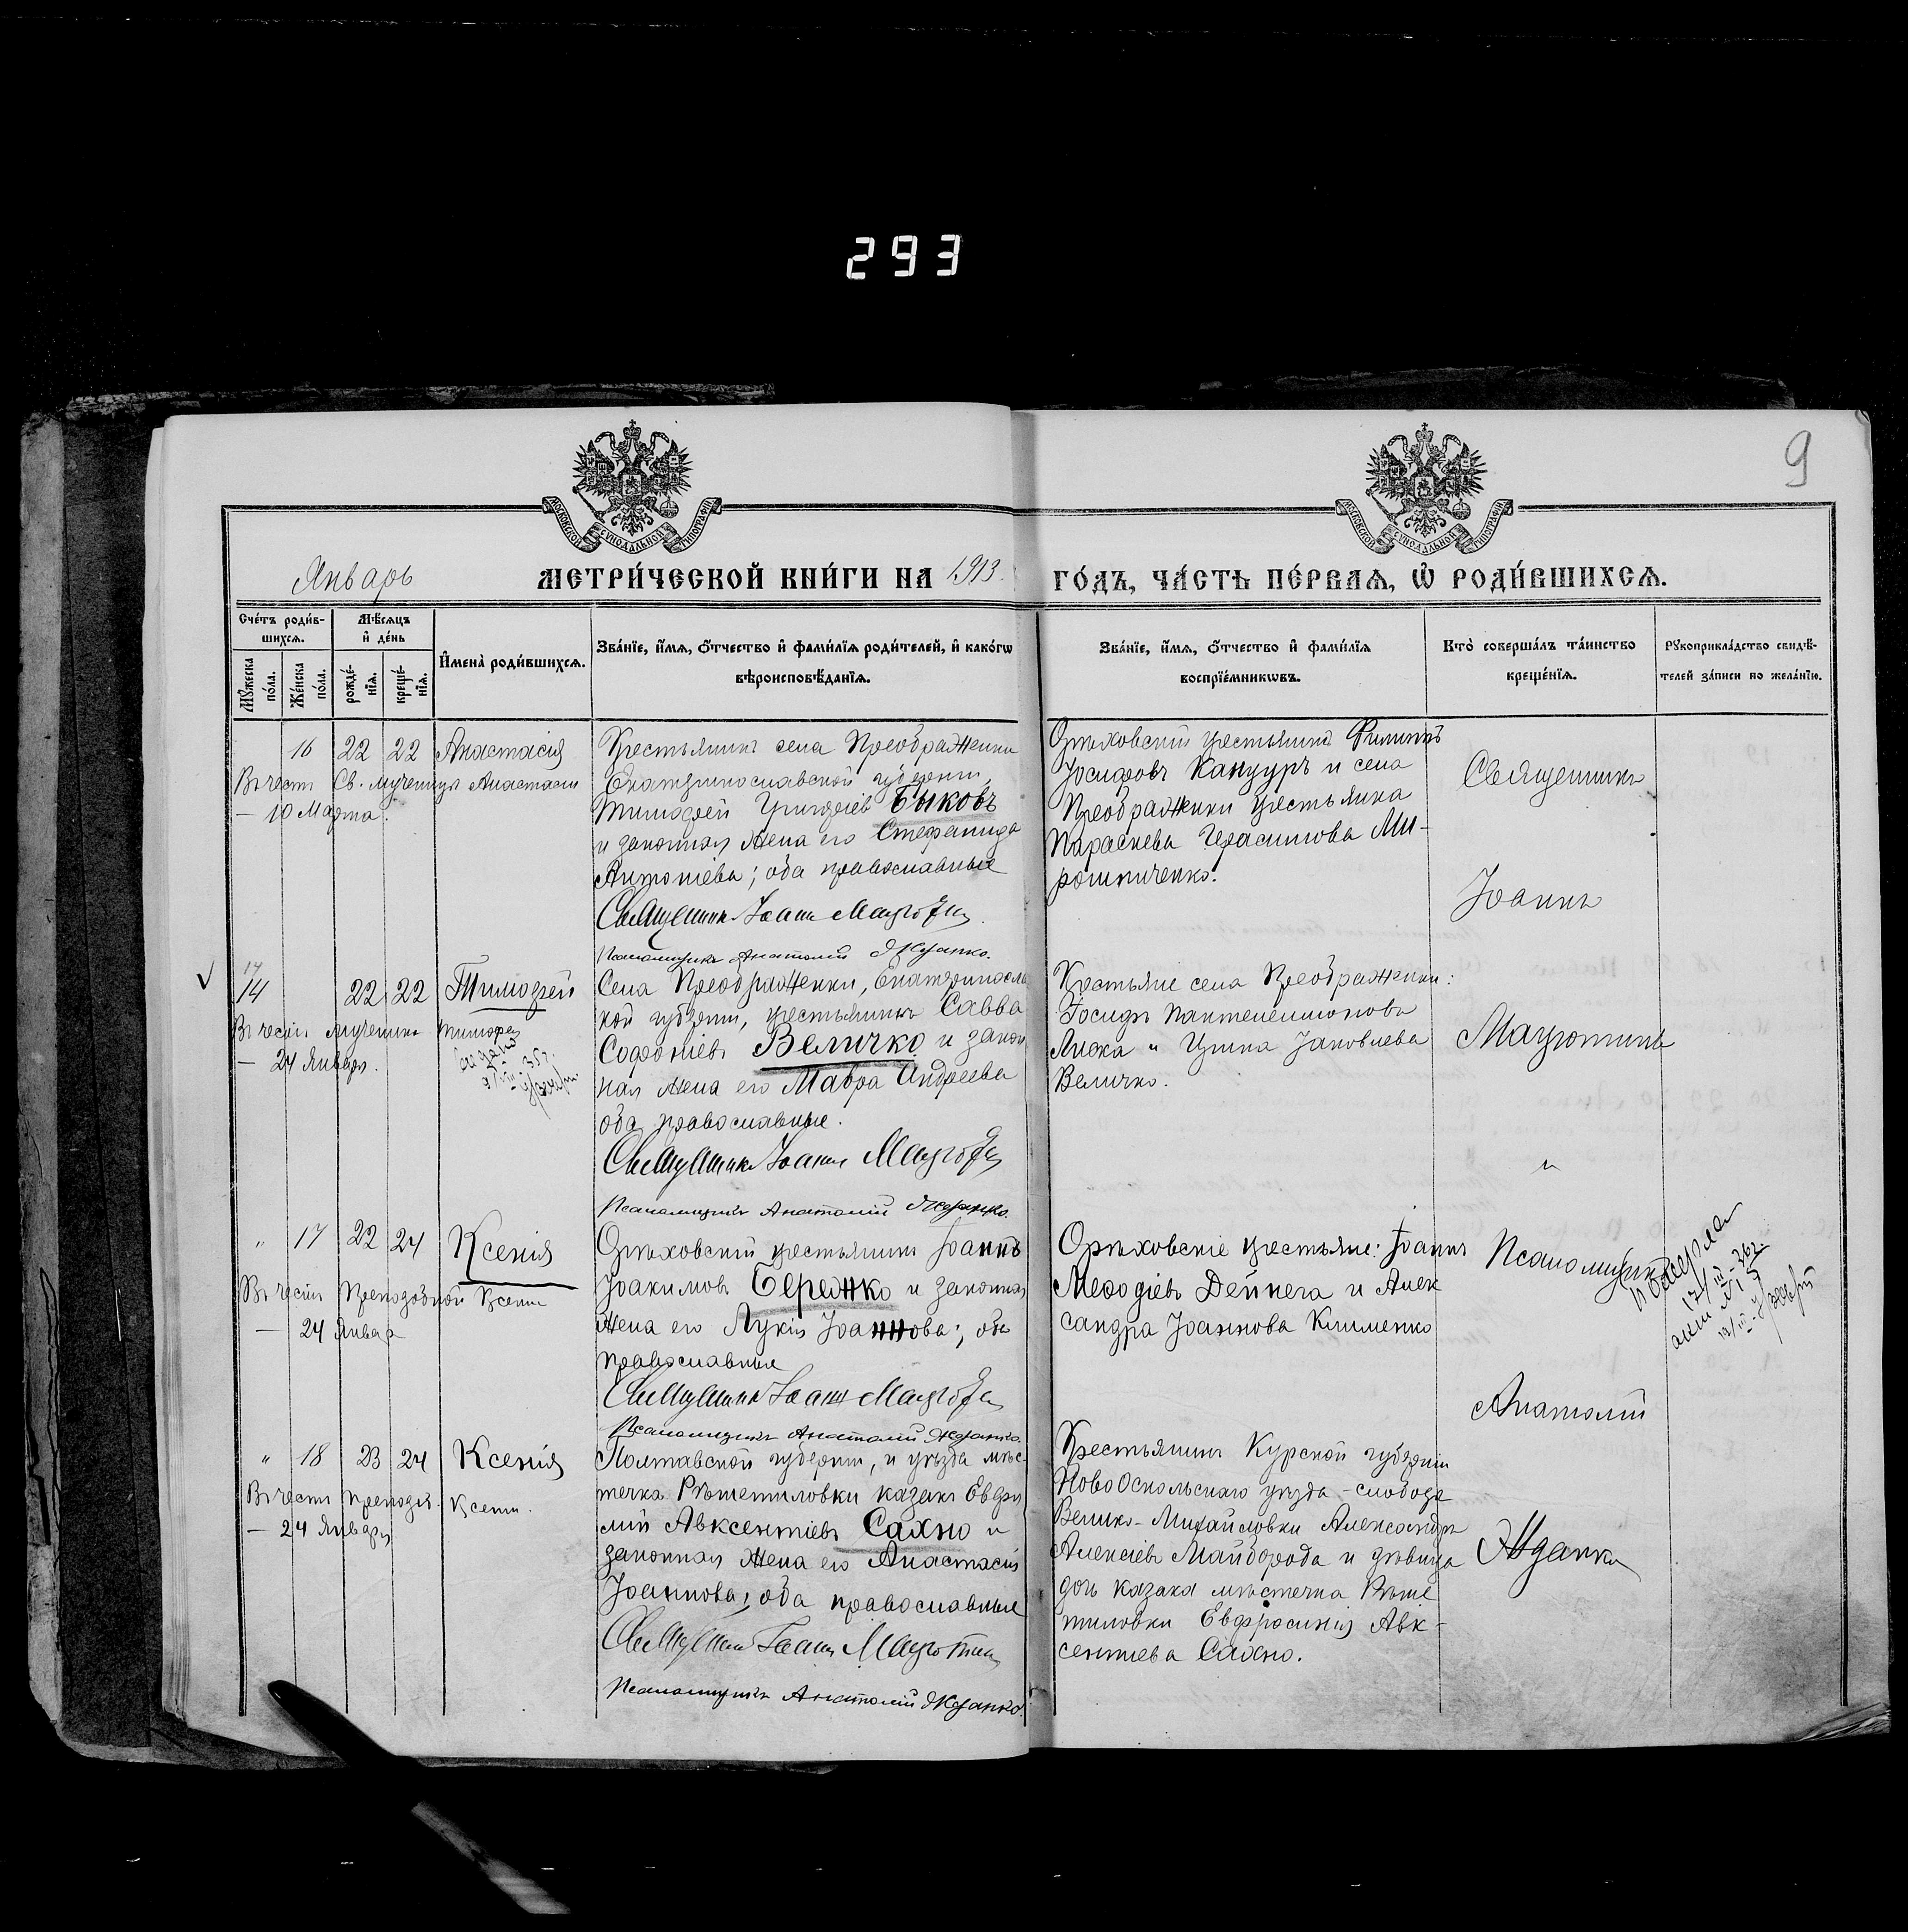 293
9
МОСКОВСКОЙ СѴНОДАЛЬНОЙ ТИПОГРАФІИ
МОСКОВСКОЙ СѴНОДАЛЬНОЙ ТИПОГРАФІИ
Январь
МЕТРИ́ЧЕСКОЙ КНИ́ГИ НА 1913 ГО́ДЪ, ЧА́СТЬ ПЕ́РВАѦ, Ѡ҆ РОДИ́ВШИХСѦ.
Сче́тъ роди́в-
шихсѧ.
Мꙋ́жеска по́ла.
Же́нска по́ла.
Мѣ́сѧцъ
и҆ де́нь
рожде́-
нїѧ.
креще́-
нїѧ.
И҆мена̀ роди́вшихсѧ.
Зва́нїе, и҆́мѧ, ѻ҆́тчество и҆ фами́лїѧ роди́телей, и҆ како́гѡ
вѣроисповѣ́данїѧ.
Зва́нїе, и҆́мѧ, ѻ҆́тчество и҆ фами́лїѧ
воспрїе́мникѡвъ.
Кто̀ соверша́лъ та́инство
креще́нїѧ.
Рꙋкоприкла́дство свидѣ́-
телей за́писи по жела́нїю.
16 22 22 Анастасія
Въ честь Св. мученицы Анастасіи
— 10 Марта.
Крестьянинъ села Преображенки
Екатеринославской губерніи,
Тимофей Григоріевъ Быковъ
и законная жена его Стефанида
Антоніева; оба православные
Священникъ Іоаннъ Мацютинъ
Псаломщикъ Анатолій Жданко.
Орѣховскій крестьянинъ Филиппъ
Іосифовъ Канцуръ и села
Преображенки крестьянка
Параскева Герасимова Ми-
рошниченко.
Священникъ
Іоаннъ
Мацютинъ
и
Псаломщикъ
Анатолій
Жданко
14 22 22 Тимофей
Въ честь мученика Тимофея
— 24 Января.
Села Преображенки, Екатеринослав
кой губерніи, крестьянинъ Савва
Софоніевъ Величко и закон
ная жена его Мавра Андреева
оба православные.
Священникъ Іоаннъ Мацютинъ
Псаломщикъ Анатолій Жданко.
Крестьяне села Преображенки:
Іосифъ Пантелеимонова
Ирина Іаковлева
Величко.
„ 17 22 24 Ксенія
Въ честь Преподобной Ксеніи
— 24 Января
Орѣховскій крестьянинъ Іоаннъ
Іоакимовъ Бережко и законная
жена его Лукія Іоаннова; оба
православные
Священникъ Іоаннъ Мацютинъ
Псаломщикъ Анатолій Жданко.
Орѣховскіе крестьяне: Іоаннъ
Меѳодіевъ Дейнега и Алек
сандра Іоаннова Клименко
„ 18 23 24 Ксенія
Въ честь преподоб. Ксеніи.
— 24 Января
Полтавской губерніи, и уѣзда мѣс-
течка Рѣшетиловки казакъ Евфи
мій Авксентіевъ Сахно и
законная жена его Анастасія
Іоаннова; оба православные
Священникъ Іоаннъ Мацютинъ
Псаломщикъ Анатолій Жданко.
Крестьянинъ Курской губерніи
НовоОскольскаго уѣзда - слободы
Велико-Михайловки Александръ
Алексіевъ Майборода и дѣвица
дочь казака мѣстечка Рѣше
тиловки Евфросинія Авк-
сентіева Сахно.